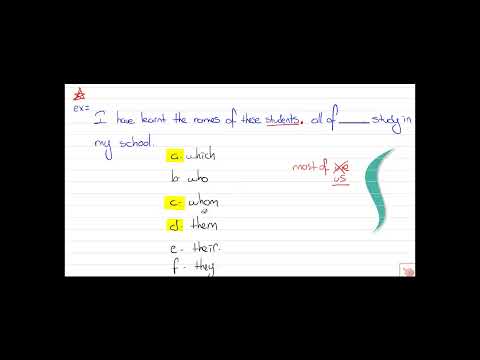 ex=
I have learnt the names of these students. all of _____ study in
my school.
a. which
b. who
c. whom
d. them
e. their.
f. they
most of we
us